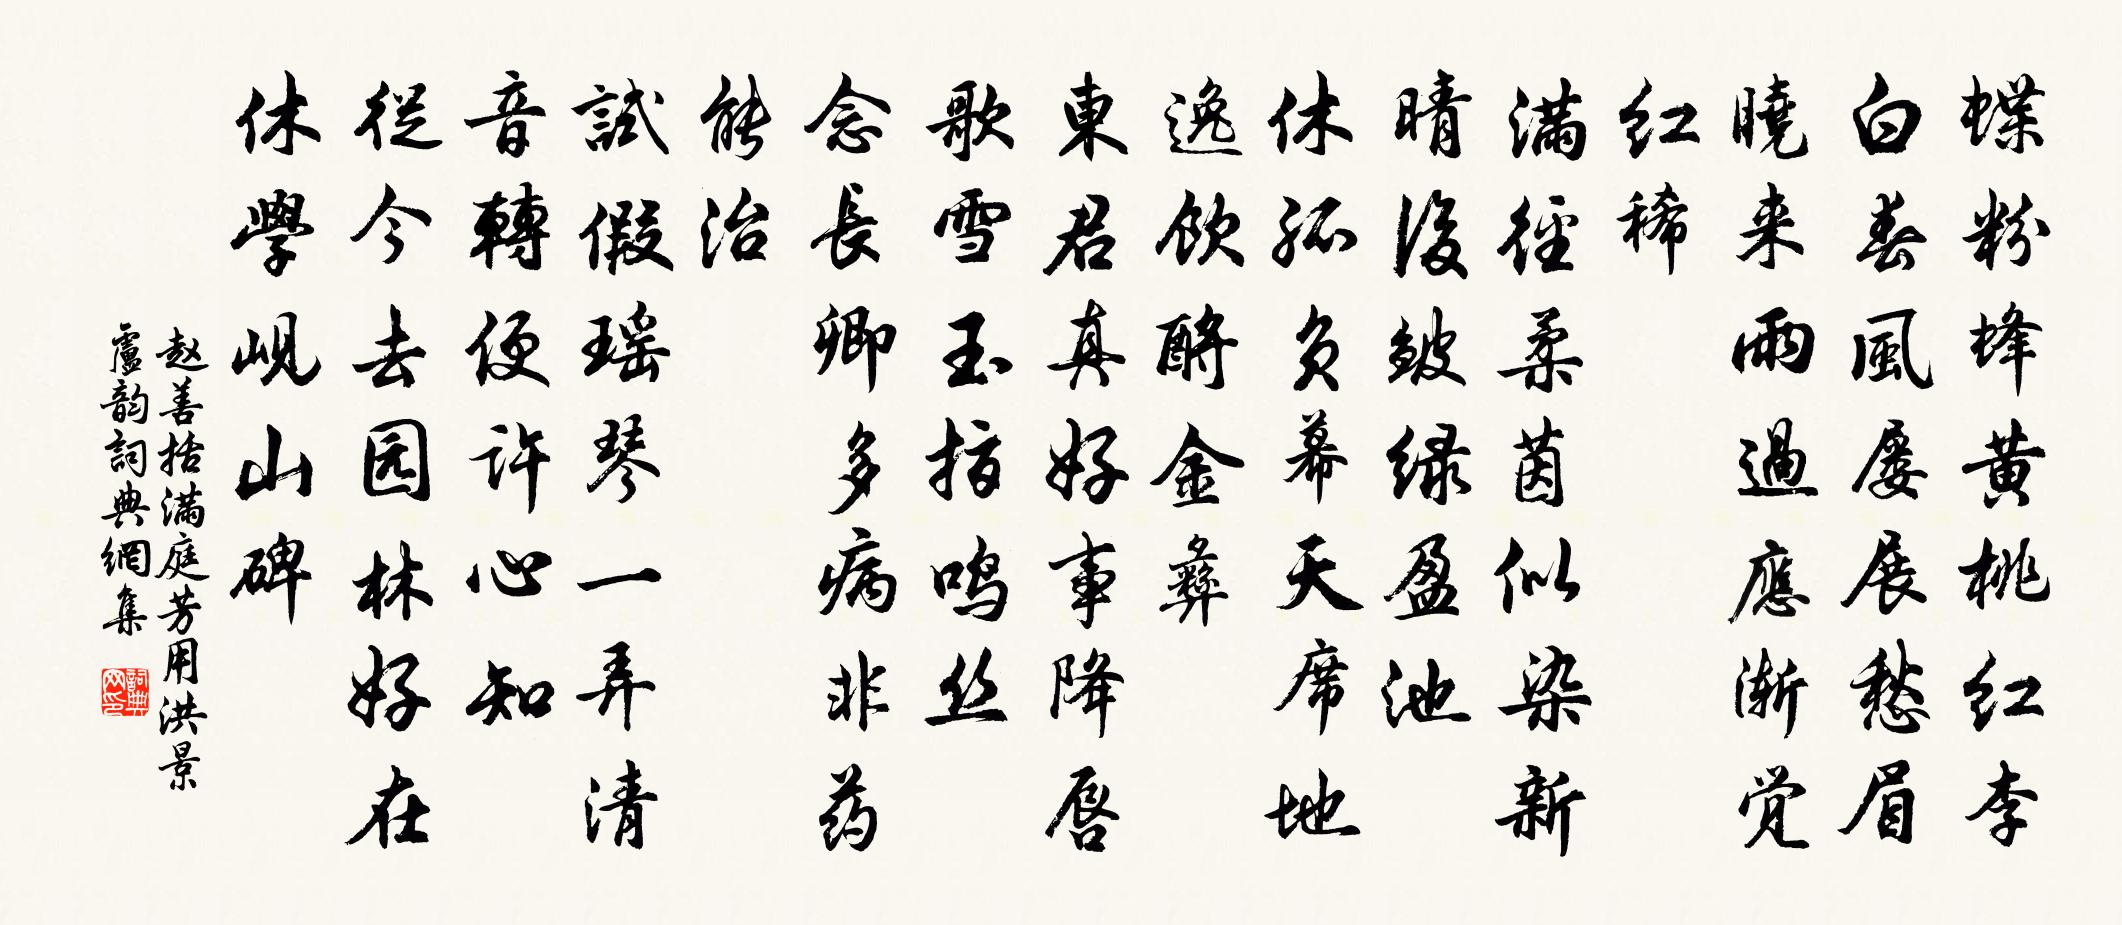 蝶粉蜂黄桃红李
白春風屡展愁眉
曉来雨過應渐觉
红稀
满徑柔茵似染新
晴後皱绿盈池
休孤负幕天席地
逸飲酹金彝
東君真好事降唇
歌雪玉指鸣丝
念長卿多病非药
能治
試假瑶琴一弄清
音轉便许心知
從今去园林好在
休學岘山碑
赵善括满庭芳用洪景
盧韵詞典網集
詞典网印